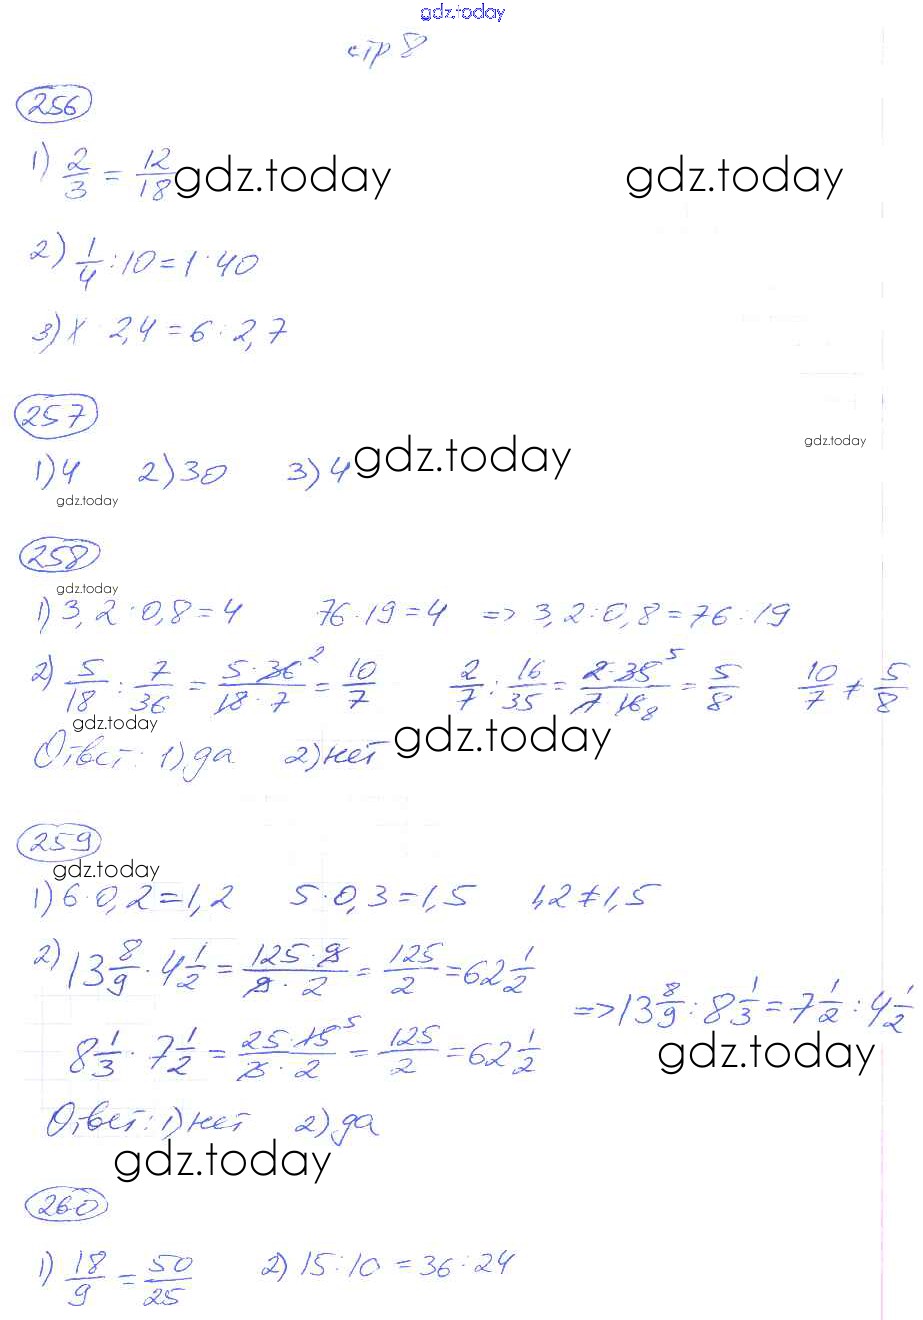 gdz.today
стр 8
256
1) 2/3 = 12/18 gdz.today gdz.today
2) 1/4 : 10 = 1 : 40
3) x : 2,4 = 6 : 2,7
257
gdz.today
1) 4 2) 30 3) 4 gdz.today
gdz.today
258
gdz.today
1) 3,2 : 0,8 = 4 76 : 19 = 4 => 3,2 : 0,8 = 76 : 19
2) 5/18 : 7/36 = 5·36²/18·7 = 10/7 2/7 : 16/35 = 2·35⁵/7·16₈ = 5/8 10/7 ≠ 5/8
gdz.today
Ответ: 1) да 2) нет gdz.today
259
gdz.today
1) 6·0,2 = 1,2 5·0,3 = 1,5 1,2 ≠ 1,5
2) 13 8/9 · 4 1/2 = 125·9/9·2 = 125/2 = 62 1/2
=> 13 8/9 : 8 1/3 = 7 1/2 : 4 1/2
8 1/3 · 7 1/2 = 25·15⁵/3·2 = 125/2 = 62 1/2
gdz.today
Ответ: 1) нет 2) да
gdz.today
260
1) 18/9 = 50/25 2) 15 : 10 = 36 : 24